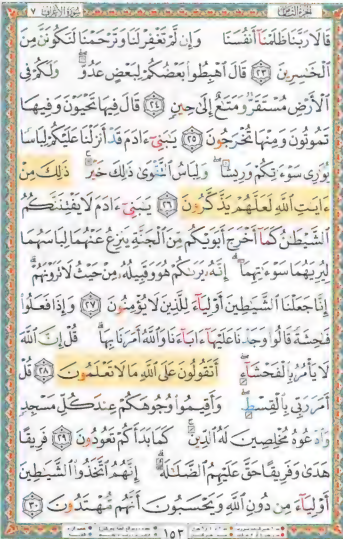 ٧ سورة الأعراف الجزء الثامن
قَالَا رَبَّنَا ظَلَمْنَآ أَنفُسَنَا وَإِن لَّمْ تَغْفِرْ لَنَا وَتَرْحَمْنَا لَنَكُونَنَّ مِنَ
ٱلْخَٰسِرِينَ ٢٣ قَالَ ٱهْبِطُوا۟ بَعْضُكُمْ لِبَعْضٍ عَدُوٌّ وَلَكُمْ فِى
ٱلْأَرْضِ مُسْتَقَرٌّ وَمَتَٰعٌ إِلَىٰ حِينٍ ٢٤ قَالَ فِيهَا تَحْيَوْنَ وَفِيهَا
تَمُوتُونَ وَمِنْهَا تُخْرَجُونَ ٢٥ يَٰبَنِىٓ ءَادَمَ قَدْ أَنزَلْنَا عَلَيْكُمْ لِبَاسًا
يُوَٰرِى سَوْءَٰتِكُمْ وَرِيشًا وَلِبَاسُ ٱلتَّقْوَىٰ ذَٰلِكَ خَيْرٌ ذَٰلِكَ مِنْ
ءَايَٰتِ ٱللَّهِ لَعَلَّهُمْ يَذَّكَّرُونَ ٢٦ يَٰبَنِىٓ ءَادَمَ لَا يَفْتِنَنَّكُمُ
ٱلشَّيْطَٰنُ كَمَآ أَخْرَجَ أَبَوَيْكُم مِّنَ ٱلْجَنَّةِ يَنزِعُ عَنْهُمَا لِبَاسَهُمَا
لِيُرِيَهُمَا سَوْءَٰتِهِمَآ إِنَّهُۥ يَرَىٰكُمْ هُوَ وَقَبِيلُهُۥ مِنْ حَيْثُ لَا تَرَوْنَهُمْ
إِنَّا جَعَلْنَا ٱلشَّيَٰطِينَ أَوْلِيَآءَ لِلَّذِينَ لَا يُؤْمِنُونَ ٢٧ وَإِذَا فَعَلُوا۟
فَٰحِشَةً قَالُوا۟ وَجَدْنَا عَلَيْهَآ ءَابَآءَنَا وَٱللَّهُ أَمَرَنَا بِهَا قُلْ إِنَّ ٱللَّهَ
لَا يَأْمُرُ بِٱلْفَحْشَآءِ أَتَقُولُونَ عَلَى ٱللَّهِ مَا لَا تَعْلَمُونَ ٢٨ قُلْ
أَمَرَ رَبِّى بِٱلْقِسْطِ وَأَقِيمُوا۟ وُجُوهَكُمْ عِندَ كُلِّ مَسْجِدٍ
وَٱدْعُوهُ مُخْلِصِينَ لَهُ ٱلدِّينَ كَمَا بَدَأَكُمْ تَعُودُونَ ٢٩ فَرِيقًا
هَدَىٰ وَفَرِيقًا حَقَّ عَلَيْهِمُ ٱلضَّلَٰلَةُ إِنَّهُمُ ٱتَّخَذُوا۟ ٱلشَّيَٰطِينَ
أَوْلِيَآءَ مِن دُونِ ٱللَّهِ وَيَحْسَبُونَ أَنَّهُم مُّهْتَدُونَ ٣٠
١٥٣